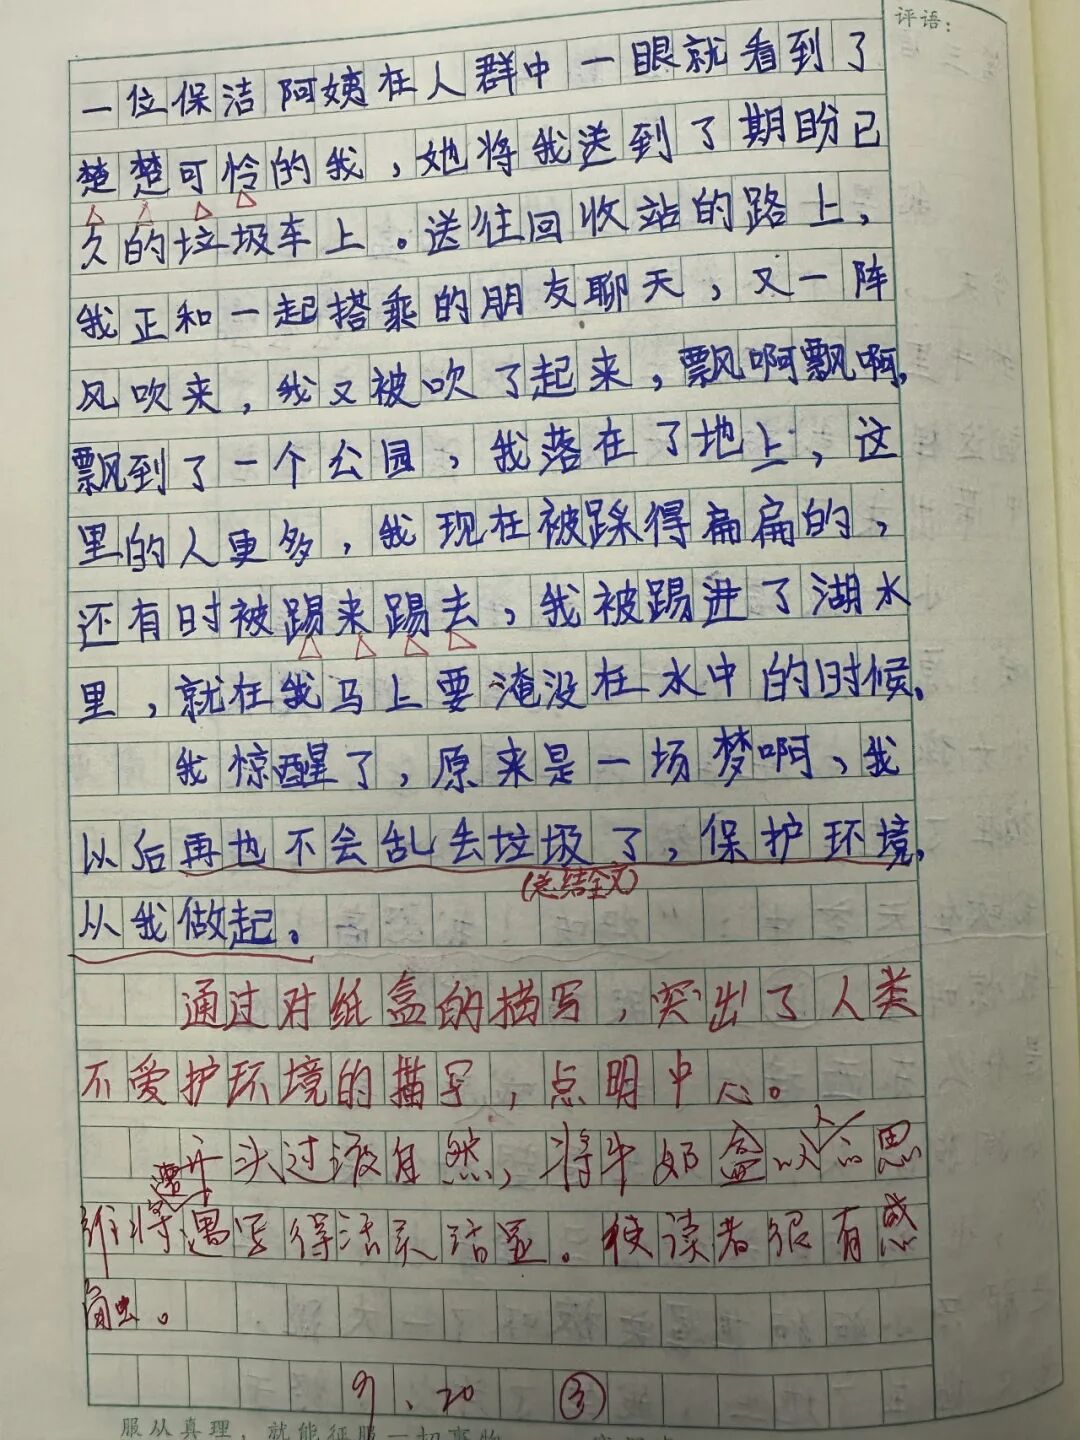 评语：
一位保洁阿姨在人群中一眼就看到了
楚楚可怜的我，她将我送到了期盼已
久的垃圾车上。送往回收站的路上，
我正和一起搭乘的朋友聊天，又一阵
风吹来，我又被吹了起来，飘啊飘啊，
飘到了一个公园，我落在了地上，这
里的人更多，我现在被踩得扁扁的，
还有时被踢来踢去，我被踢进了湖水
里，就在我马上要淹没在水中的时候。
我惊醒了，原来是一场梦啊，我
以后再也不会乱丢垃圾了，保护环境，
(总结全文)
从我做起。
通过对纸盒的描写，突出了人类
不爱护环境的描写，点明中心。
开头过渡自然，将牛奶盒以人的思
维将遭遇写得活灵活现。使读者很有感
触。
9.20 ③
服从真理，就能征服一切事物